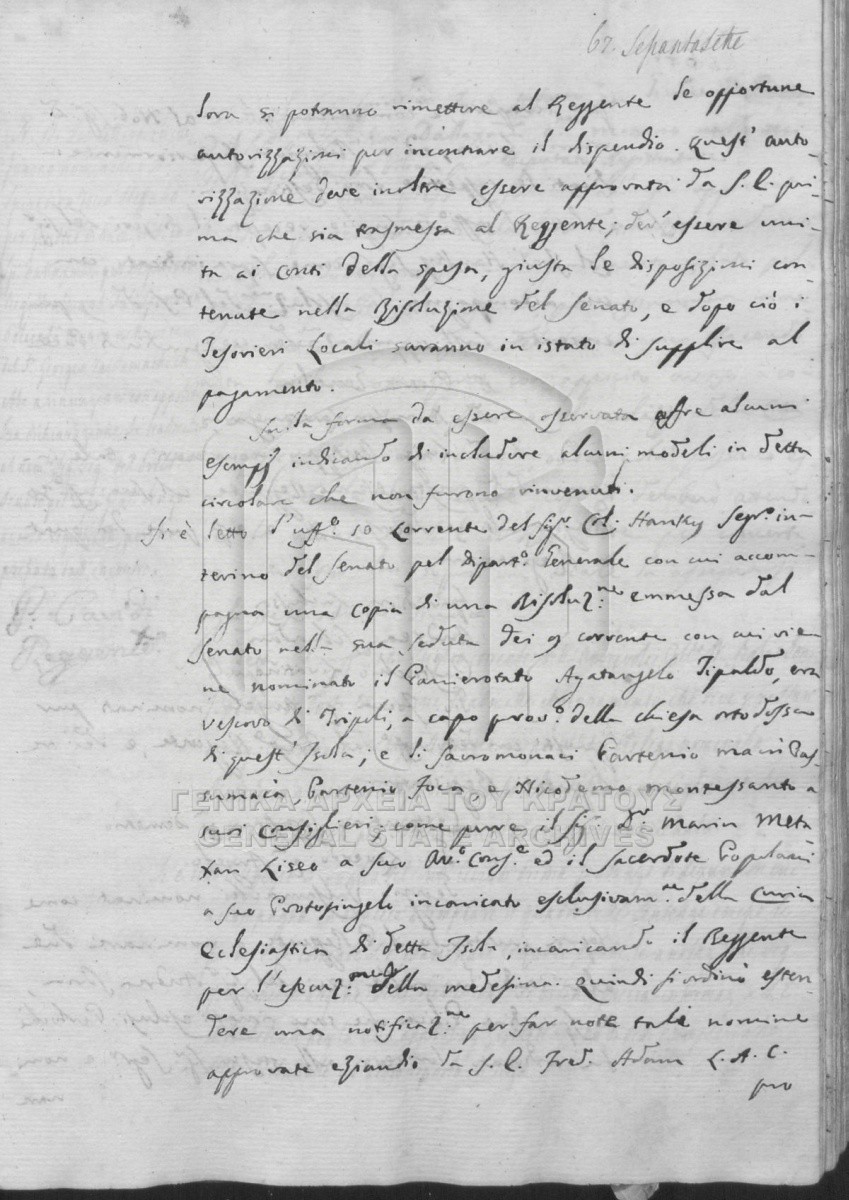 67. Sesantasette
lora si potranno rimettere al Reggente le opportune
autorizzazioni per incontrare il dispendio. Quest' auto-
rizzazione deve inoltre essere approvata da S. E. pri-
ma che sia trasmessa al Reggente; dev' essere uni-
ta ai Conti della spesa, giusta le disposizioni con-
tenute nella Risoluzione del Senato, e dopo ciò i
Tesorieri Locali saranno in istato di supplire al
pagamento.
Sulla forma da essere osservata offre alcuni
esempj indicando di includere alcuni modeli in detta
circolare che non furono rinvenuti.
Si è letto l'uff.o 10 corrente del Sig.r Col. Hanky Segr.o in-
terino del Senato pel dipart.o Generale con cui accom-
pagna una copia di una Risoluz.ne emmessa dal
Senato nella sua seduta dei 9 corrente con cui vie
ne nominato il Panierotato Agatangelo Tipaldo, era
vescovo di Tripoli, a capo prov.o della chiesa ortodossa
di quest' Isola; e li sacromonaci Partenio macri
Partenio Foca e Nicodemo montessanto a
suoi Consiglieri; come pure il Sig. D.r Marin Meta
xan Liseo a suo Cons.e ed il sacerdote Popolani
a suo Protosingelo incaricato esclusivam.e della Curia
Eclesiastica di detta Isola, incaricando il Reggente
per l'esecuz.ne della medesima. Quindi si ordinò esten-
dere una notificaz.ne per far note tali nomine
approvate eziandio da S. E. Fred. Adam L. A. C.
pro
ΓΕΝΙΚΑ ΑΡΧΕΙΑ ΤΟΥ ΚΡΑΤΟΥΣ
GENERAL STATE ARCHIVES